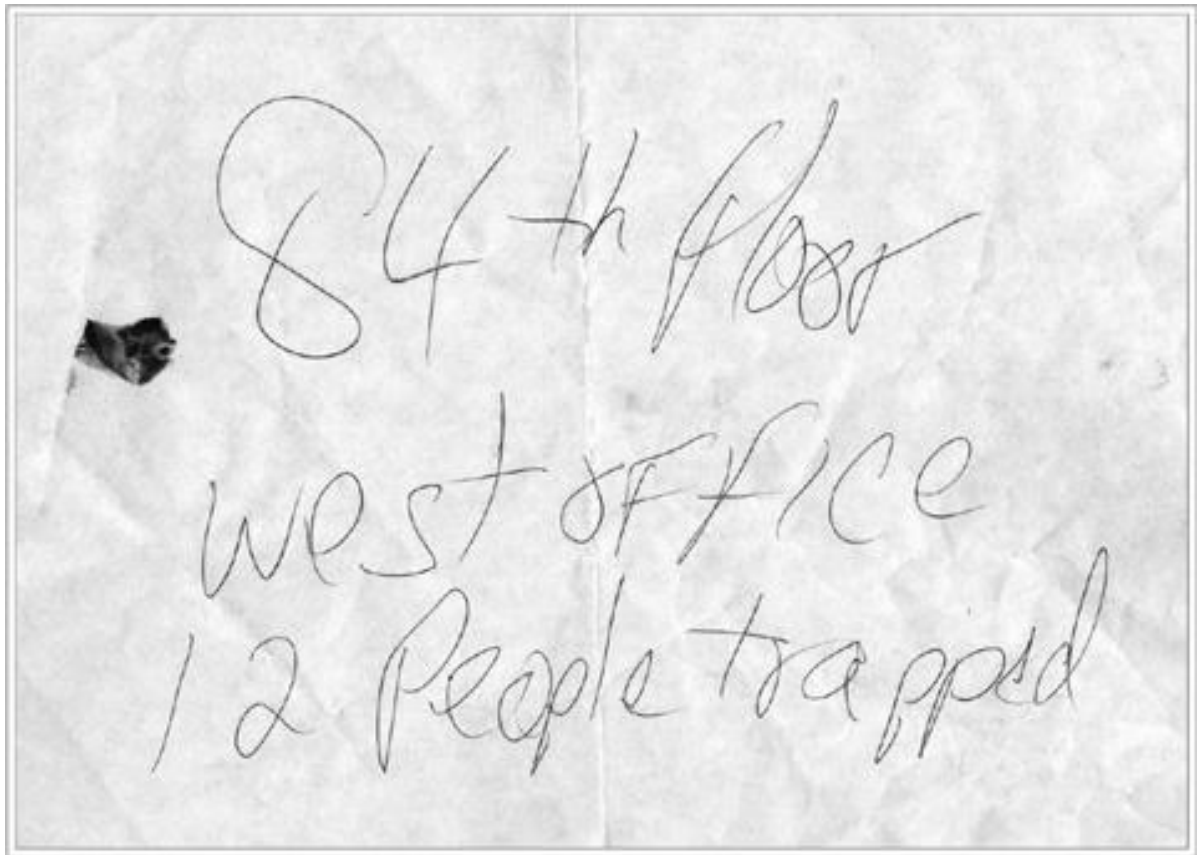 84th floor
west office
12 People trapped